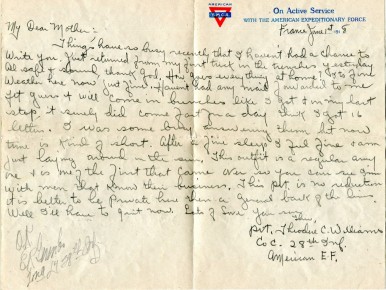 AMERICAN
Y.M.C.A.
On Active Service
WITH THE AMERICAN EXPEDITIONARY FORCE
France June 1st 1918
My Dear Mother:
Things have so busy recently that I haven't had a chance to
write you. Just returned from my first trick in the trenches yesterday
all safe & sound, thank God. How goes everything at home? It's fine
weather here now. Haven't had any mail forwarded to me
yet guess it will come in bunches like I got in my last
stop, it surely did come fast for a day think I got 16
letters. I was some busy answering them but now
time is kind of short. After a fine sleep I feel fine & am
just laying around in the sun. This outfit is a regular army
one & is one of the first that came over so you can see I'm
with men that know their business. This pvt. is no reduction
it is better to be private here than a general back of the lines.
Well I'll have to quit now. Lots of love
Pvt. Theodore C. Williams
Co C. 28th Inf.
American E.F.
28th Inf